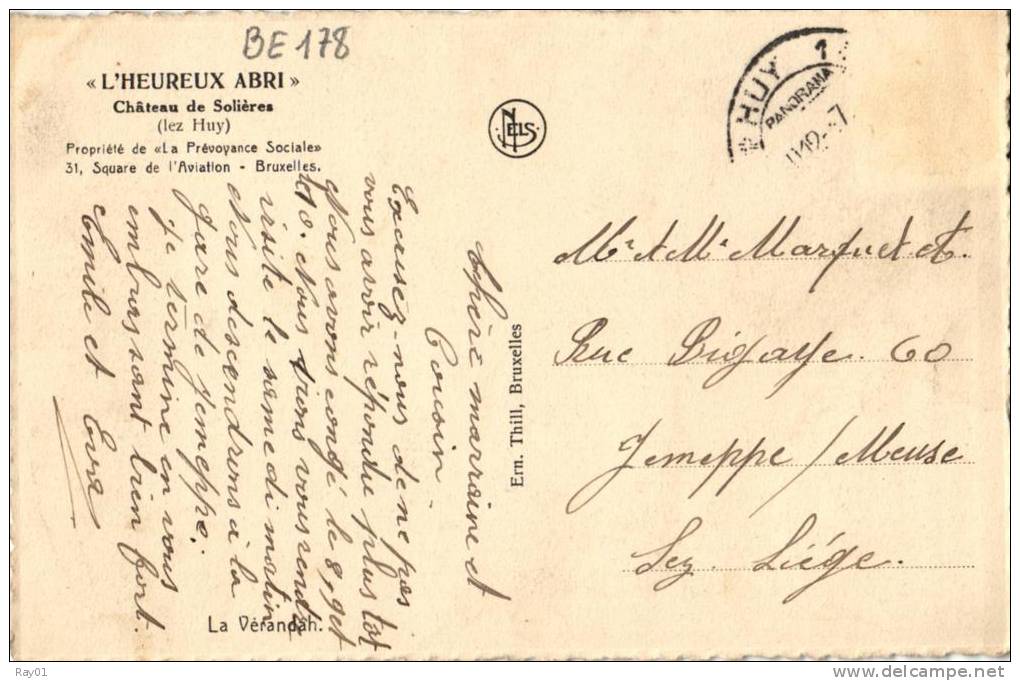 BE 178
« L'HEUREUX ABRI »
Château de Solières
(lez Huy)
Propriété de «La Prévoyance Sociale»
31, Square de l'Aviation - Bruxelles.
NELS
HUY 1
PANORAMA
Chère marraine et
Cousin.
Excusez-nous de ne pas
vous avoir répondu plus tôt
Nous avons congé le 8, 9 et
le 10. Nous irons vous rendre
visite le samedi matin
Nous descendrons à la
gare de Jemeppe.
Je termine en vous
embrassant bien fort.
Emile et Eva
La Vérandah.
Ern. Thill, Bruxelles
Mr & Me
Rue Bigaye. 60
Jemeppe / Meuse
Lez Liége.
Ray01
delcampe.net